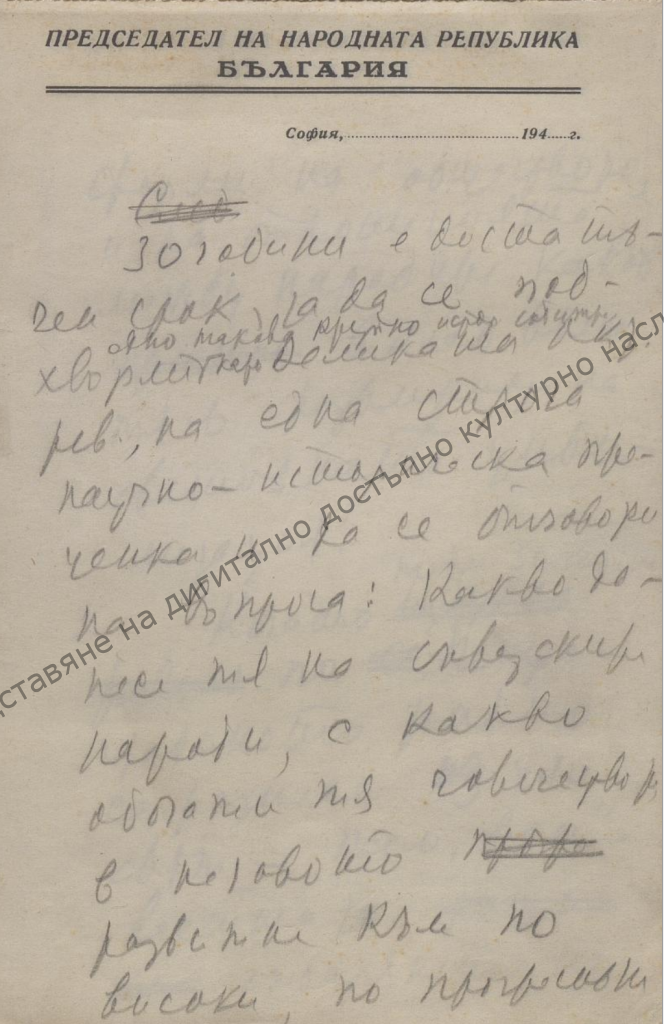 ПРЕДСЕДАТЕЛ НА НАРОДНАТА РЕПУБЛИКА
БЪЛГАРИЯ
София, 194 г.
След
30 години е достатъ-
чен срок за да се под-
едно такова крупно истор. събитие
хвърли Великата Окт.
рев., на една строга
научно-историческа пре-
ценка и да се отговори
на въпроса: Какво до-
несе тя на съветските
народи, с какво
обогати тя човечество
в неговото
развитие към по
високи, по прогресивни
дставяне на дигитално достъпно културно насл